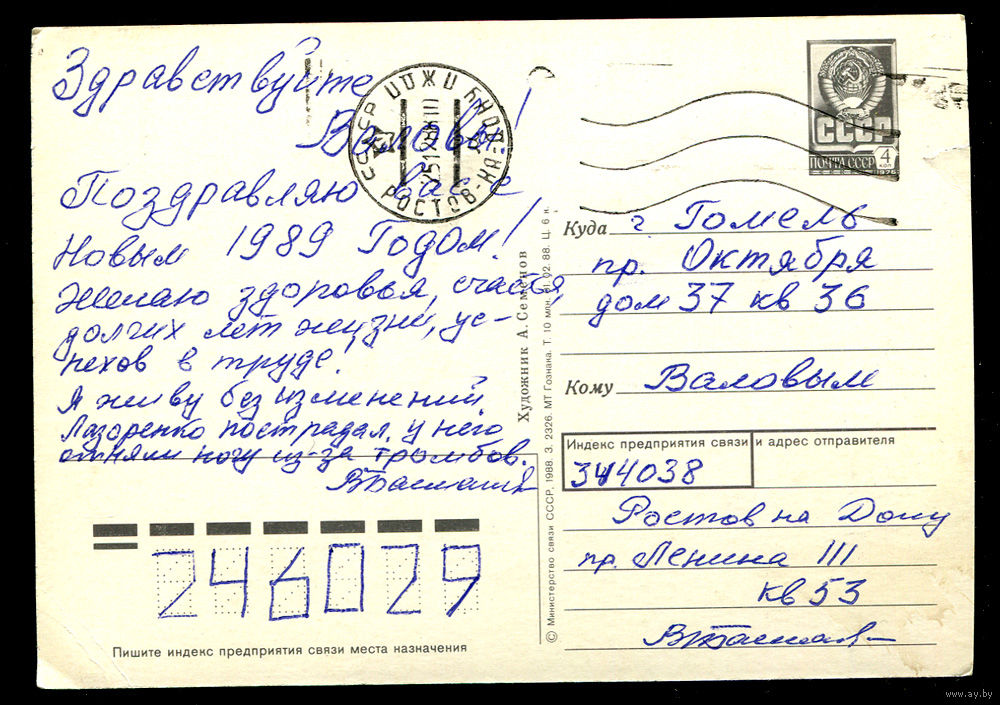 Здравствуйте
Валовы!
Поздравляю Вас с
Новым 1989 Годом!
Желаю здоровья, счастья,
долгих лет жизни, ус-
пехов в труде!
Я живу без изменений.
Лазоренко пострадал, у него
отняли ногу из-за тромбов.
246029
Пишите индекс предприятия связи места назначения
РОСТОВ-НА-ДОНУ
СССР
4 коп
ПОЧТА СССР
1976
Художник А. Семенов
© Министерство связи СССР, 1988. З. 2326. МТ Гознака. Т. 10 млн. 01.02.88. Ц. 6 к.
Куда г. Гомель
пр. Октября
дом 37 кв 36
Кому Валовым
Индекс предприятия связи и адрес отправителя
344038
Ростов на Дону
пр. Ленина 111
кв 53
www.ay.by